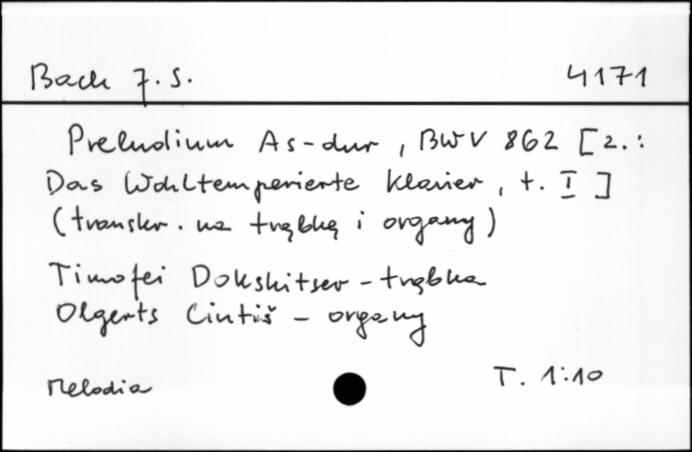 Bach J. S. 4171
Preludium As-dur, BWV 862 [z.:
Das Wohltemperierte Klavier, t. I]
(transkr. na trąbkę i organy)
Timofei Dokshitser - trąbka
Olgerts Cintiš - organy
Melodia T. 1:10